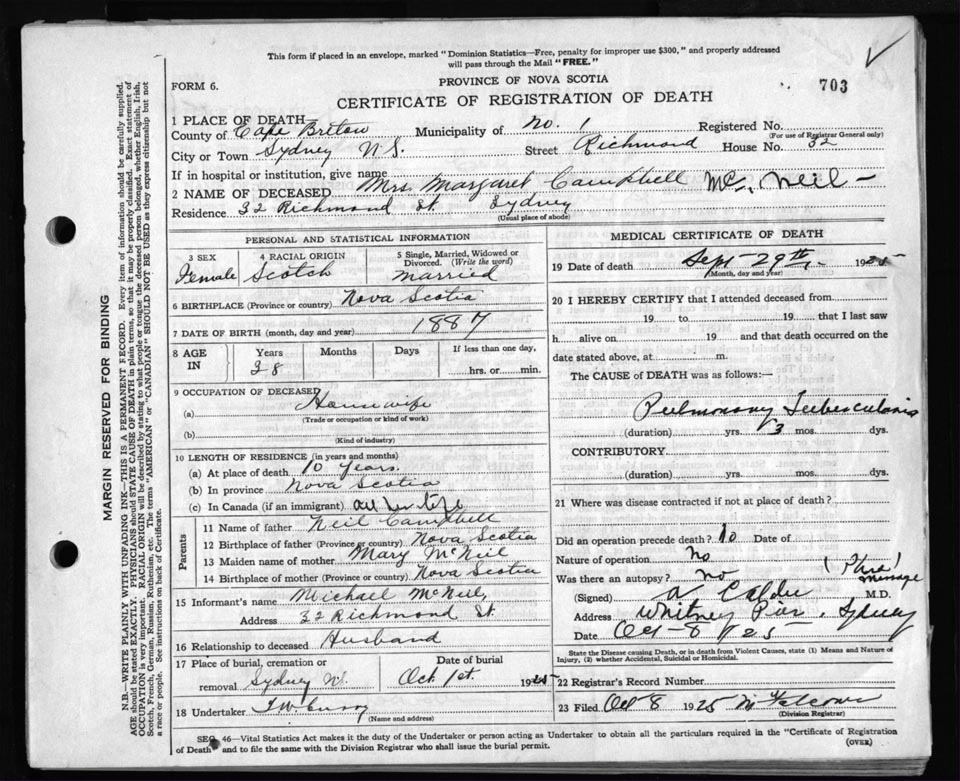 This form if placed in an envelope, marked "Dominion Statistics—Free, penalty for improper use $300," and properly addressed
will pass through the Mail "FREE."
PROVINCE OF NOVA SCOTIA
703
FORM 6.
CERTIFICATE OF REGISTRATION OF DEATH
1 PLACE OF DEATH
County of Cape Breton Municipality of No. 1 Registered No.
(For use of Registrar General only)
City or Town Sydney N.S. Street Richmond House No. 32
If in hospital or institution, give name
2 NAME OF DECEASED Mrs. Margaret Campbell Mc. Neil
Residence 32 Richmond St. Sydney
(Usual place of abode)
PERSONAL AND STATISTICAL INFORMATION
3 SEX 4 RACIAL ORIGIN 5 Single, Married, Widowed or
Divorced. (Write the word)
Female Scotch married
6 BIRTHPLACE (Province or country) Nova Scotia
7 DATE OF BIRTH (month, day and year) 1887
8 AGE IN Years Months Days If less than one day,
38 hrs. or min.
9 OCCUPATION OF DECEASED
(a) Housewife
(Trade or occupation or kind of work)
(b)
(Kind of industry)
10 LENGTH OF RESIDENCE (in years and months)
(a) At place of death 10 years.
(b) In province Nova Scotia
(c) In Canada (if an immigrant) all her life
Parents
11 Name of father Neil Campbell
12 Birthplace of father (Province or country) Nova Scotia
13 Maiden name of mother Mary McNeil
14 Birthplace of mother (Province or country) Nova Scotia
15 Informant's name Michael McNeil,
Address 32 Richmond St.
16 Relationship to deceased Husband
17 Place of burial, cremation or Date of burial
removal Sydney N. Oct 1st. 1925
18 Undertaker
(Name and address)
MEDICAL CERTIFICATE OF DEATH
19 Date of death Sept 29th, 1925
(Month, day and year)
20 I HEREBY CERTIFY that I attended deceased from
19 to 19 that I last saw
h alive on 19 and that death occurred on the
date stated above, at m.
The CAUSE of DEATH was as follows:—
Pulmonary Tuberculosis
(duration) yrs. 3 mos. dys.
CONTRIBUTORY
(duration) yrs. mos. dys.
21 Where was disease contracted if not at place of death?
Did an operation precede death? Date of
Nature of operation No
Was there an autopsy? no
(Signed) M.D.
Address Whitney Pier, Sydney
Date Oct 8 /25
State the Disease causing Death, or in death from Violent Causes, state (1) Means and Nature of
Injury, (2) whether Accidental, Suicidal or Homicidal.
22 Registrar's Record Number
23 Filed Oct 8 1925
(Division Registrar)
SEC. 46—Vital Statistics Act makes it the duty of the Undertaker or person acting as Undertaker to obtain all the particulars required in the "Certificate of Registration
of Death" and to file the same with the Division Registrar who shall issue the burial permit.
(OVER)
MARGIN RESERVED FOR BINDING
N.B.—WRITE PLAINLY WITH UNFADING INK—THIS IS A PERMANENT RECORD. Every item of information should be carefully supplied.
AGE should be stated EXACTLY. PHYSICIANS should STATE CAUSE OF DEATH in plain terms, so that it may be properly classified. Exact statement of
OCCUPATION is very important. RACIAL ORIGIN will be described by stating to what people or tongue the deceased person belonged, whether English, Irish,
Scotch, French, German, Russian, Ruthenian, etc. The terms "AMERICAN" or "CANADIAN" SHOULD NOT BE USED as they express citizenship but not
a race or people. See instructions on back of Certificate.